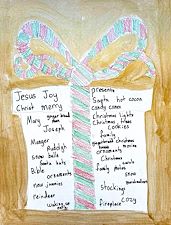 Jesus Joy
Christ merry
Mary gingerbread men
Joseph
Manger
Rudolph
Snow balls
Santa hats
Bible
ornaments
new jammies
reindeer
waking up early
presents
Santa hot cocoa
candy canes
Christmas lights
Christmas trees
cookies
family
gingerbread christmas
houses movies
ornaments
Christmas
carols
family photos
Snow
marshmallows
Stockings
Cozy
fireplace